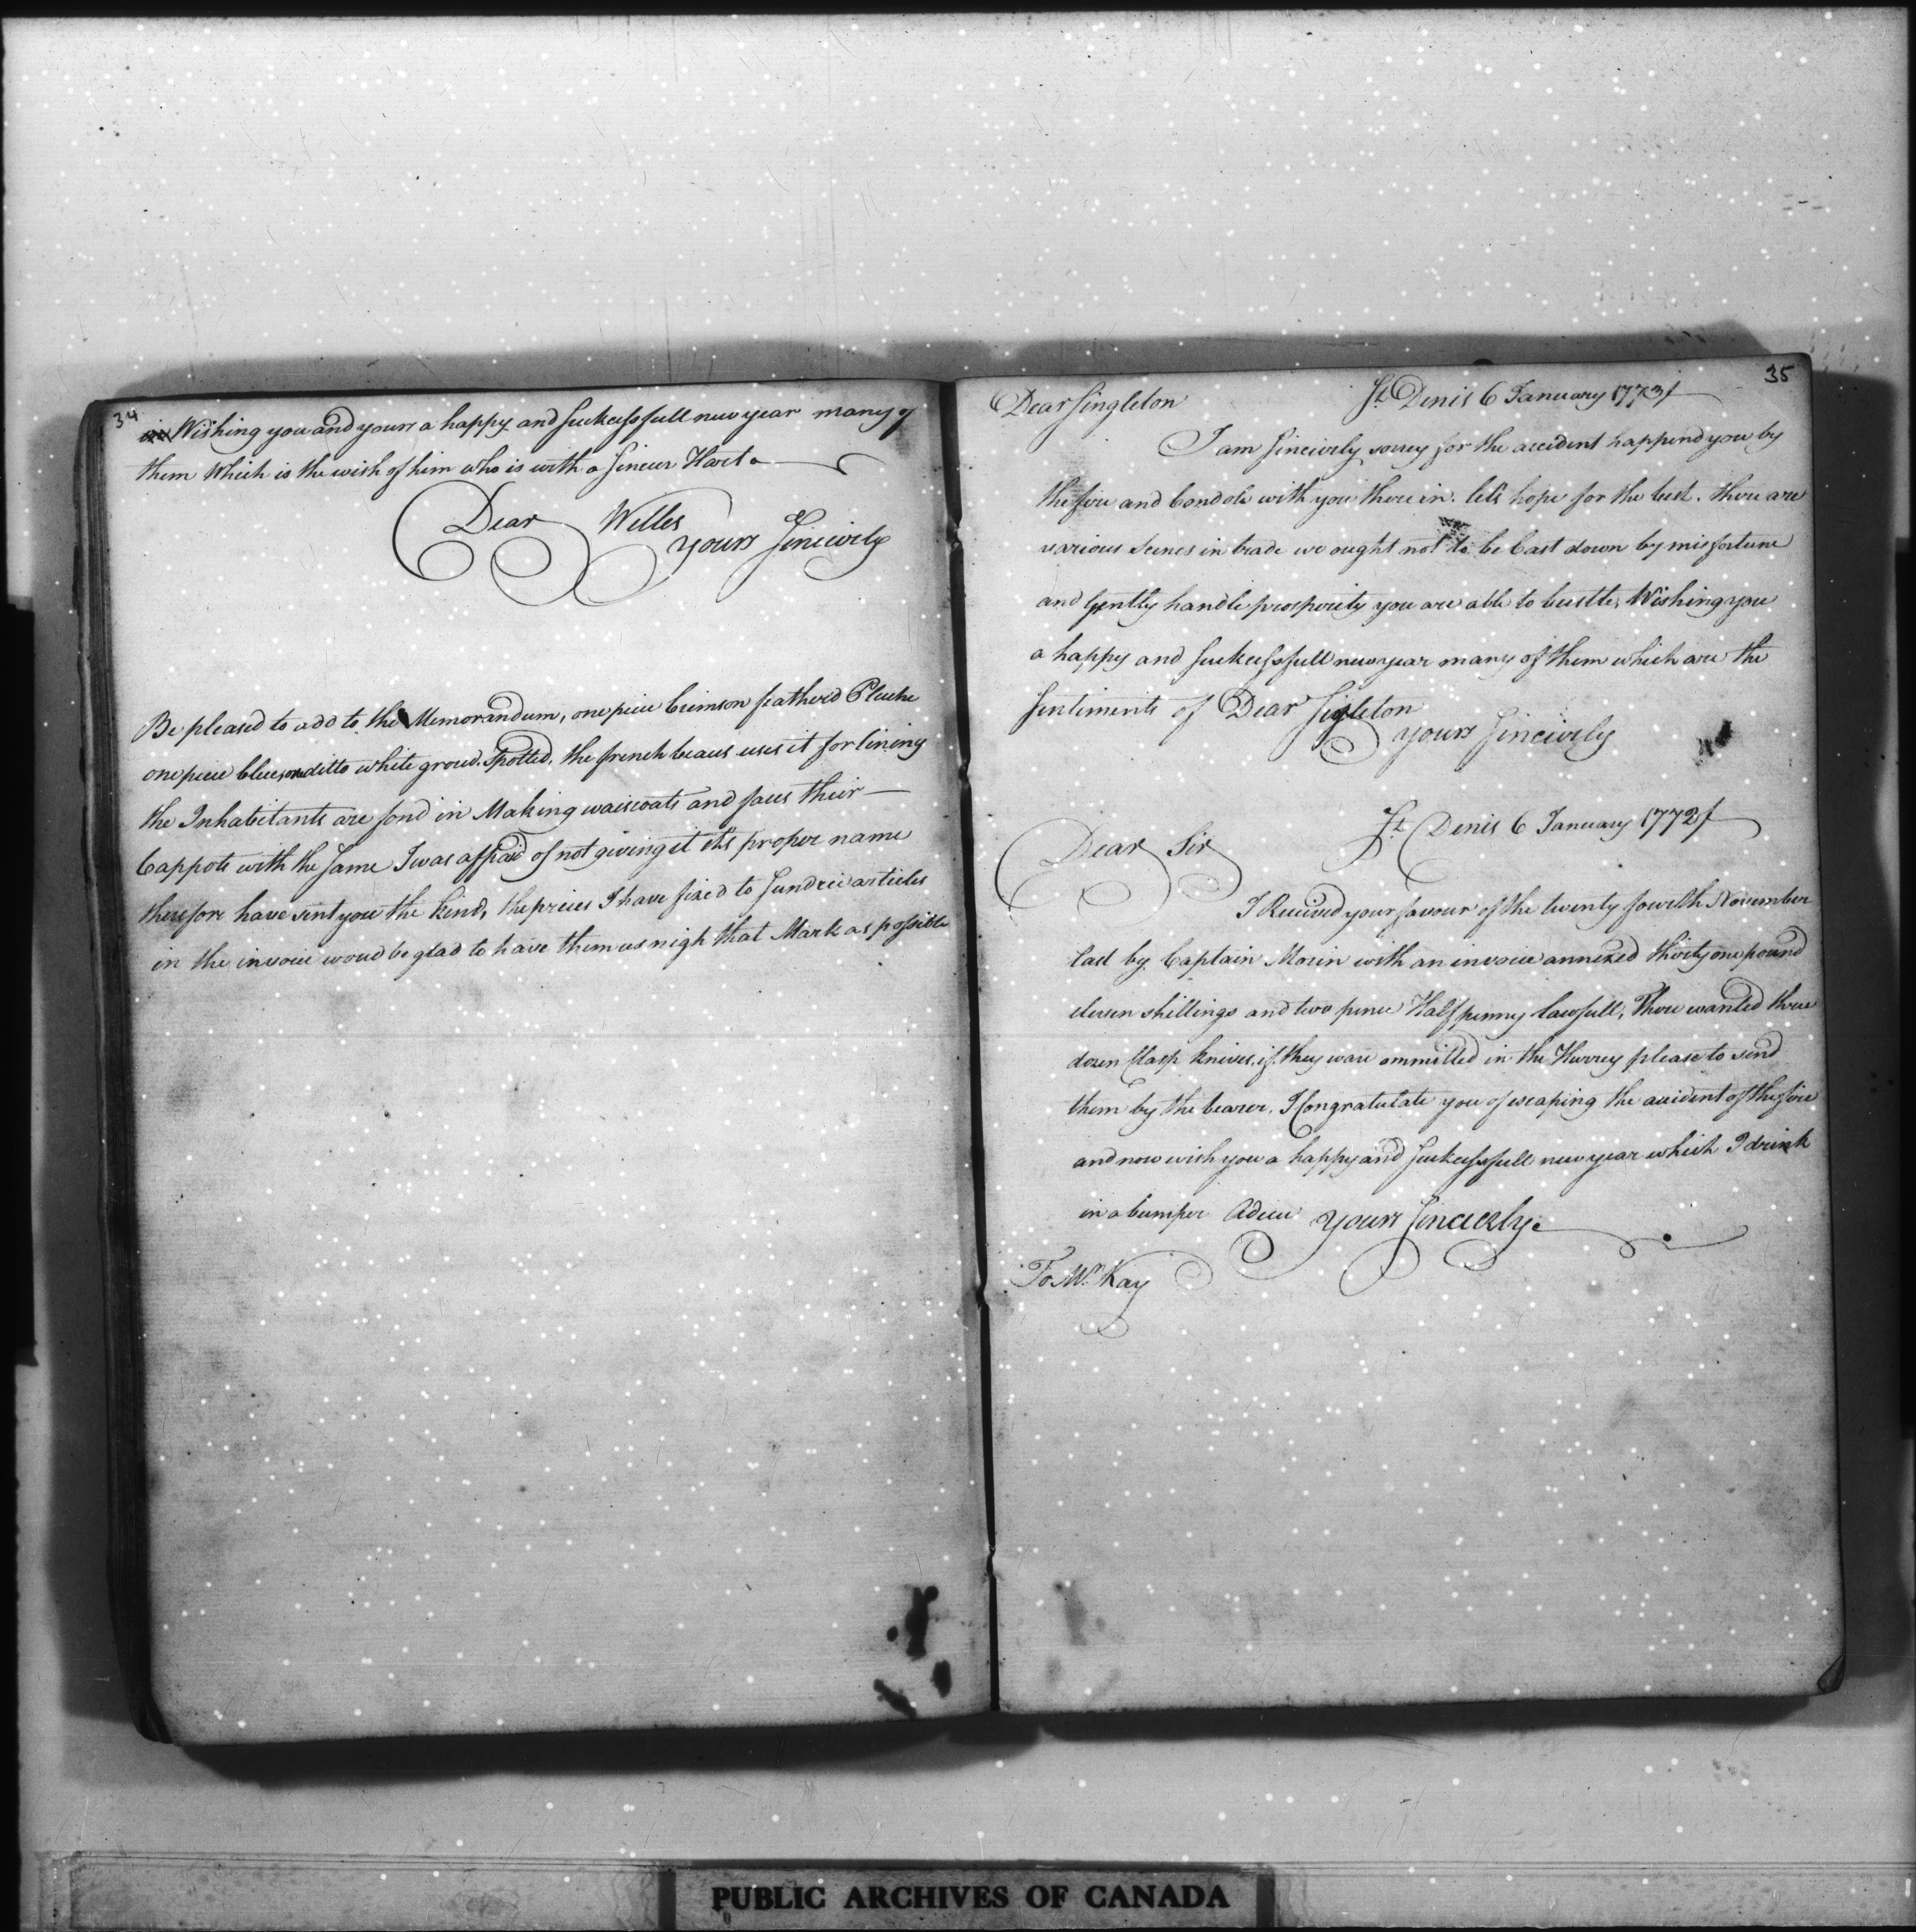 34
Wishing you and yours a happy and suckessfull new year many of
them Which is the wish of him who is with a sincer Hart
Dear Welles
yours Sincirely
Be pleased to add to the Memorandum, one piece Crimson featherd Pluche
one piece blue, one ditto white groud. Spotted. the french beaus uses it for lining
the Inhabitants are fond in Making waiscoats and faces their
Cappots with the same I was affraid of not giving it it's proper name
therefore have sent you the kind, the prices I have fixed to Sundrie articles
in the invoice woud be glad to have them as nigh that Mark as possible
35
Dear Singleton St Denis 6 January 1773
I am sincirely sorrey for the accident happend you by
the fire and Condole with you there in. let's hope for the best. there are
various scenes in trade we ought not to be Cast down by misfortune
and gently handle prosperity you are able to bustle, Wishing you
a happy and suckessfull new year many of them which are the
sentiments of Dear Sigleton
yours Sincirely
St Denis 6 January 1772
Dear Sir
I Received your favour of the twenty fowrth November
last by Captain Morin with an invoice annexed thirty one pound
eleven shillings and two pence Half penny lawfull, There wanted three
dozen Clasp knives, if they ware ommitted in the Hurrey please to send
them by the bearer. I Congratulate you of escaping the accident of the fire
and now wish you a happy and suckessfull new year which I drink
in a bumper Adieu yours Sincerely.
To Mr. Kay
PUBLIC ARCHIVES OF CANADA